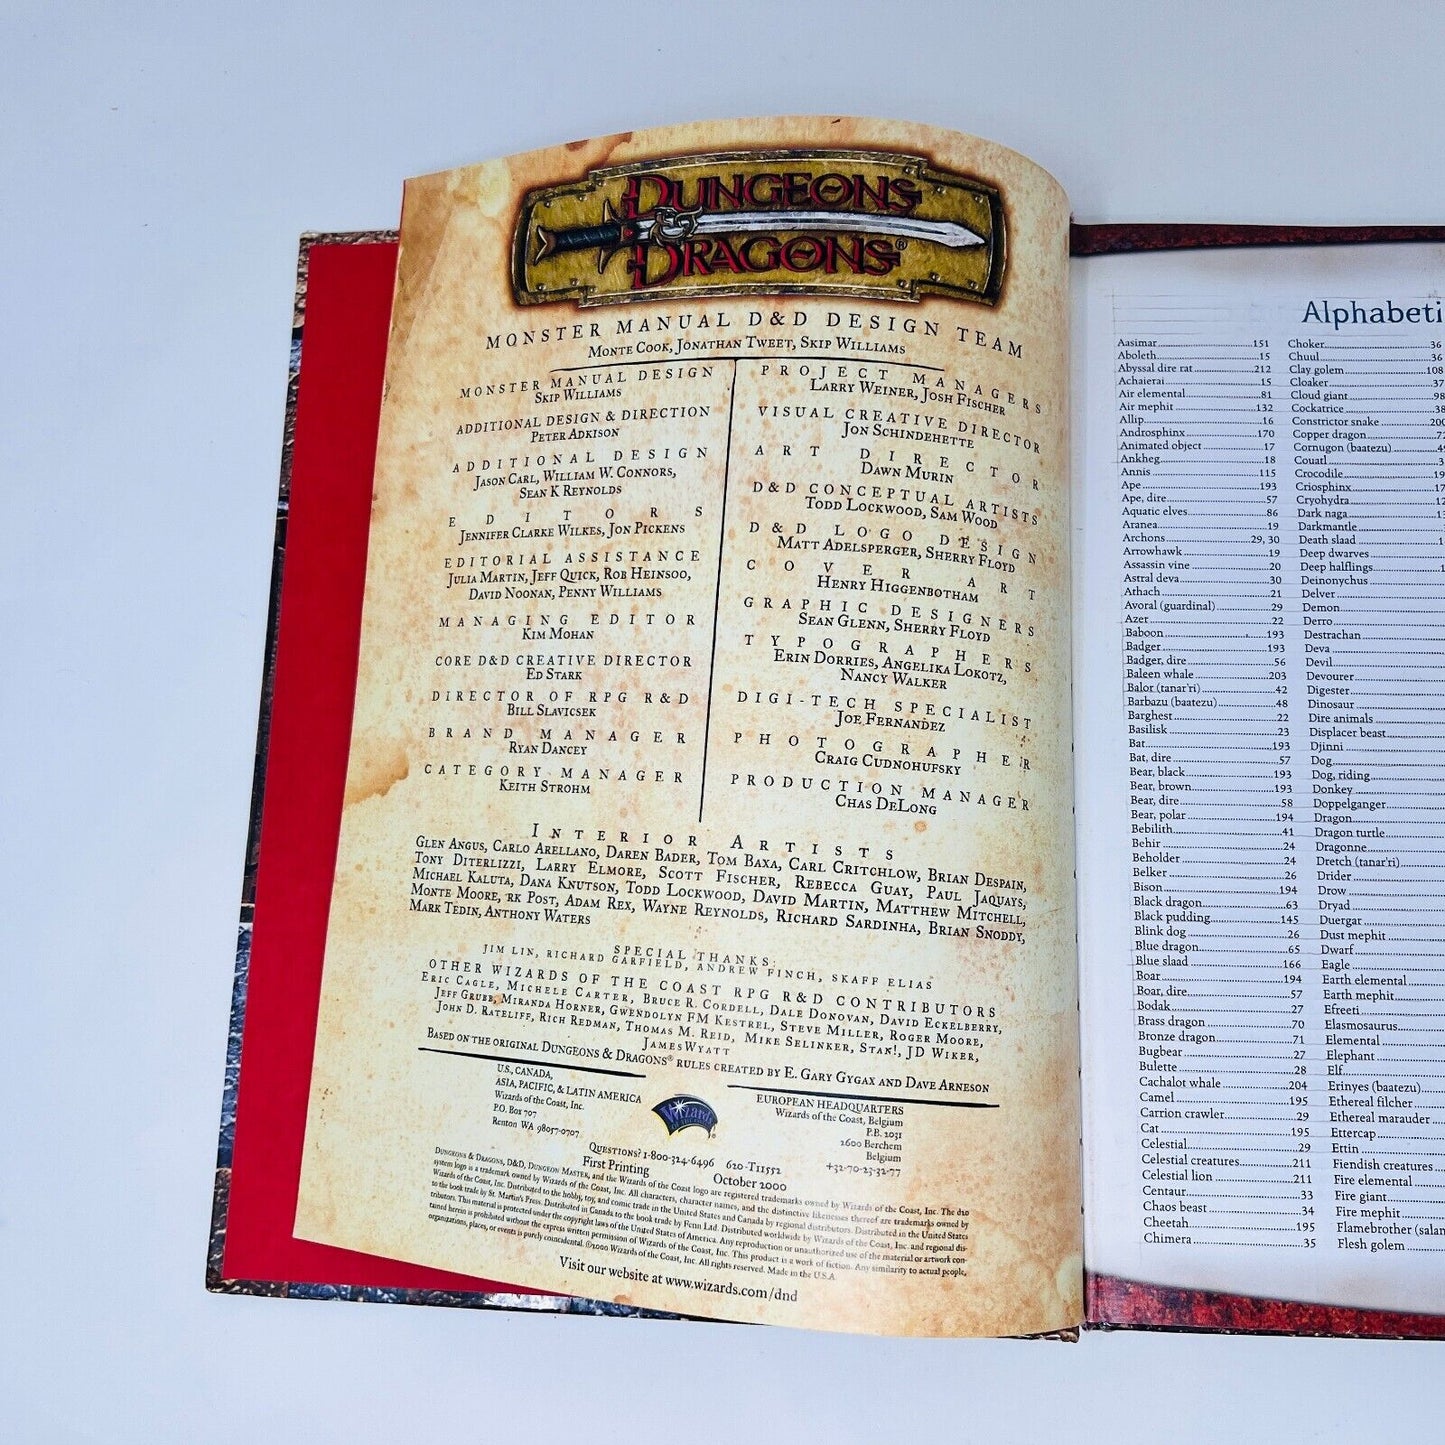 DUNGEONS
DRAGONS®
MONSTER MANUAL D&D DESIGN TEAM
MONTE COOK, JONATHAN TWEET, SKIP WILLIAMS
MONSTER MANUAL DESIGN
SKIP WILLIAMS
ADDITIONAL DESIGN & DIRECTION
PETER ADKISON
ADDITIONAL DESIGN
JASON CARL, WILLIAM W. CONNORS,
SEAN K REYNOLDS
EDITORS
JENNIFER CLARKE WILKES, JON PICKENS
EDITORIAL ASSISTANCE
JULIA MARTIN, JEFF QUICK, ROB HEINSOO,
DAVID NOONAN, PENNY WILLIAMS
MANAGING EDITOR
KIM MOHAN
CORE D&D CREATIVE DIRECTOR
ED STARK
DIRECTOR OF RPG R&D
BILL SLAVICSEK
BRAND MANAGER
RYAN DANCEY
CATEGORY MANAGER
KEITH STROHM
PROJECT MANAGERS
LARRY WEINER, JOSH FISCHER
VISUAL CREATIVE DIRECTOR
JON SCHINDEHETTE
ART DIRECTOR
DAWN MURIN
D&D CONCEPTUAL ARTISTS
TODD LOCKWOOD, SAM WOOD
D&D LOGO DESIGN
MATT ADELSPERGER, SHERRY FLOYD
COVER ART
HENRY HIGGENBOTHAM
GRAPHIC DESIGNERS
SEAN GLENN, SHERRY FLOYD
TYPOGRAPHERS
ERIN DORRIES, ANGELIKA LOKOTZ,
NANCY WALKER
DIGI-TECH SPECIALIST
JOE FERNANDEZ
PHOTOGRAPHER
CRAIG CUDNOHUFSKY
PRODUCTION MANAGER
CHAS DELONG
INTERIOR ARTISTS
GLEN ANGUS, CARLO ARELLANO, DAREN BADER, TOM BAXA, CARL CRITCHLOW, BRIAN DESPAIN,
TONY DITERLIZZI, LARRY ELMORE, SCOTT FISCHER, REBECCA GUAY, PAUL JAQUAYS,
MICHAEL KALUTA, DANA KNUTSON, TODD LOCKWOOD, DAVID MARTIN, MATTHEW MITCHELL,
MONTE MOORE, RK POST, ADAM REX, WAYNE REYNOLDS, RICHARD SARDINHA, BRIAN SNODDY,
MARK TEDIN, ANTHONY WATERS
SPECIAL THANKS:
JIM LIN, RICHARD GARFIELD, ANDREW FINCH, SKAFF ELIAS
OTHER WIZARDS OF THE COAST RPG R&D CONTRIBUTORS
ERIC CAGLE, MICHELE CARTER, BRUCE R. CORDELL, DALE DONOVAN, DAVID ECKELBERRY,
JEFF GRUBB, MIRANDA HORNER, GWENDOLYN FM KESTREL, STEVE MILLER, ROGER MOORE,
JOHN D. RATELIFF, RICH REDMAN, THOMAS M. REID, MIKE SELINKER, STAN!, JD WIKER,
JAMES WYATT
BASED ON THE ORIGINAL DUNGEONS & DRAGONS® RULES CREATED BY E. GARY GYGAX AND DAVE ARNESON
U.S., CANADA,
ASIA, PACIFIC, & LATIN AMERICA
Wizards of the Coast, Inc.
P.O. Box 707
Renton WA 98057-0707
Wizards
OF THE COAST
EUROPEAN HEADQUARTERS
Wizards of the Coast, Belgium
P.B. 2031
2600 Berchem
Belgium
+32-70-23-32-77
QUESTIONS? 1-800-324-6496 620-T11552
First Printing October 2000
DUNGEONS & DRAGONS, D&D, DUNGEON MASTER, and the Wizards of the Coast logo are registered trademarks owned by Wizards of the Coast, Inc. The d20
system logo is a trademark owned by Wizards of the Coast, Inc. All characters, character names, and the distinctive likenesses thereof are trademarks owned by
Wizards of the Coast, Inc. Distributed to the hobby, toy, and comic trade in the United States and Canada by regional distributors. Distributed in the United States
to the book trade by St. Martin's Press. Distributed in Canada to the book trade by Fenn Ltd. Distributed worldwide by Wizards of the Coast, Inc. and regional dis-
tributors. This material is protected under the copyright laws of the United States of America. Any reproduction or unauthorized use of the material or artwork con-
tained herein is prohibited without the express written permission of Wizards of the Coast, Inc. This product is a work of fiction. Any similarity to actual people,
organizations, places, or events is purely coincidental. ©2000 Wizards of the Coast, Inc. All rights reserved. Made in the U.S.A.
Visit our website at www.wizards.com/dnd
Alphabeti
Aasimar 151
Aboleth 15
Abyssal dire rat 212
Achaierai 15
Air elemental 81
Air mephit 132
Allip 16
Androsphinx 170
Animated object 17
Ankheg 18
Annis 115
Ape 193
Ape, dire 57
Aquatic elves 86
Aranea 19
Archons 29, 30
Arrowhawk 19
Assassin vine 20
Astral deva 30
Athach 21
Avoral (guardinal) 29
Azer 22
Baboon 193
Badger 193
Badger, dire 56
Baleen whale 203
Balor (tanar'ri) 42
Barbazu (baatezu) 48
Barghest 22
Basilisk 23
Bat 193
Bat, dire 57
Bear, black 193
Bear, brown 193
Bear, dire 58
Bear, polar 194
Bebilith 41
Behir 24
Beholder 24
Belker 26
Bison 194
Black dragon 63
Black pudding 145
Blink dog 26
Blue dragon 65
Blue slaad 166
Boar 194
Boar, dire 57
Bodak 27
Brass dragon 70
Bronze dragon 71
Bugbear 27
Bulette 28
Cachalot whale 204
Camel 195
Carrion crawler 29
Cat 195
Celestial 29
Celestial creatures 211
Celestial lion 211
Centaur 33
Chaos beast 34
Cheetah 195
Chimera 35
Choker 36
Chuul 36
Clay golem 108
Cloaker 37
Cloud giant 98
Cockatrice 38
Constrictor snake 200
Copper dragon 72
Cornugon (baatezu) 49
Couatl 3
Crocodile 19
Criosphinx 17
Cryohydra 12
Dark naga 13
Darkmantle
Death slaad 1
Deep dwarves
Deep halflings 1
Deinonychus
Delver
Demon
Derro
Destrachan
Deva
Devil
Devourer
Digester
Dinosaur
Dire animals
Displacer beast
Djinni
Dog
Dog, riding
Donkey
Doppelganger
Dragon
Dragon turtle
Dragonne
Dretch (tanar'ri)
Drider
Drow
Dryad
Duergar
Dust mephit
Dwarf
Eagle
Earth elemental
Earth mephit
Efreeti
Elasmosaurus
Elemental
Elephant
Elf
Erinyes (baatezu)
Ethereal filcher
Ethereal marauder
Ettercap
Ettin
Fiendish creatures
Fire elemental
Fire giant
Fire mephit
Flamebrother (salan
Flesh golem